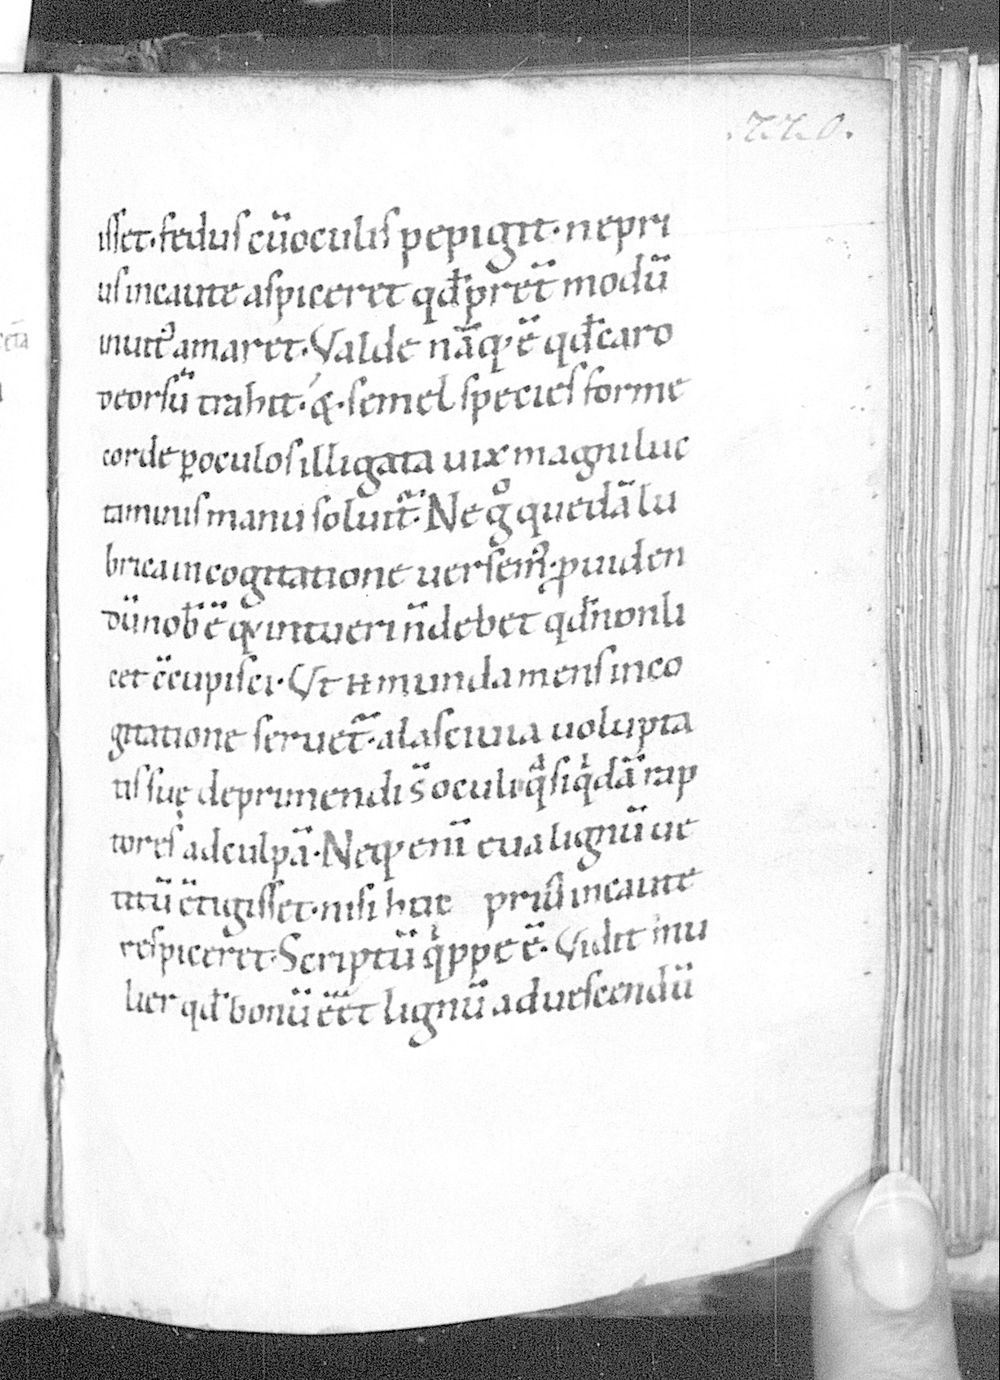 .220.
isset· fedus cū oculis pepigit· ne pri
us incaute aspiceret qđ p̄ret̄ modū
inuit᷒ amaret· Valde nāq; ē qđ caro
deorsū trahit· & semel species forme
corde ꝑ oculos illigata uix magni luc
taminis manu soluit̄· Ne g̊ quedā lu
brica in cogitatione uersem᷒· ꝓuiden
dū nob̄ ē q; intueri n̄ debet qđ non li
cet c̄cupisci· Vt ħ munda mens in co
gitatione seruet̄· a lasciuia uolupta
tis suę deprimendi s̄ oculi q̄si q̇dā rap
tores ad culpā· Neq; enī eua lignū ue
titū c̄tigisset· nisi hoc prius incaute
respiceret· Scriptū q̇ppe ē· Vidit mu
lier qđ bonū ēēt lignū ad uescendū